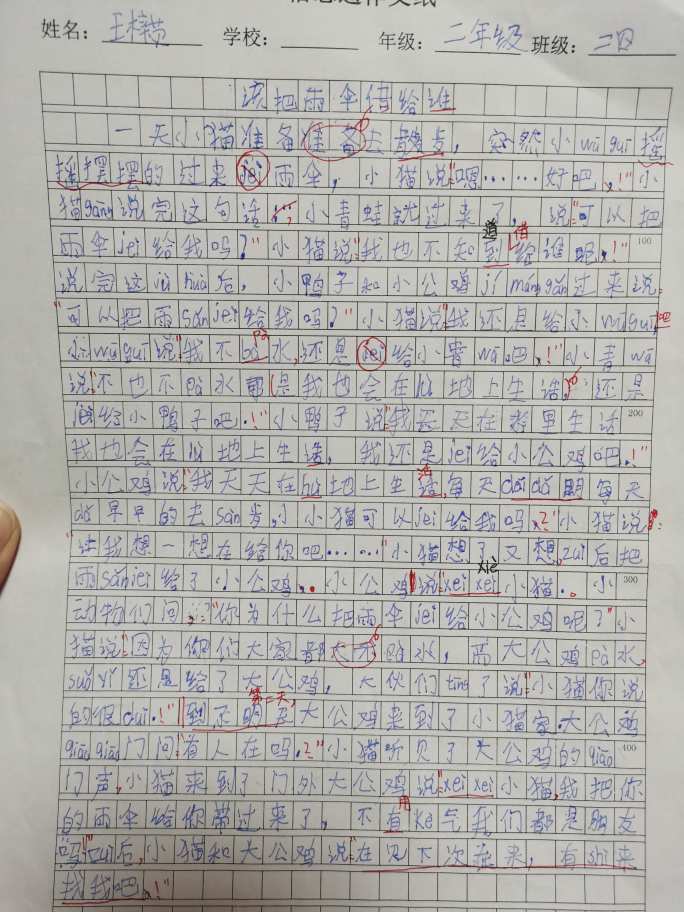 姓名：王梓 学校： 年级：二年级 班级：二四
该把雨伞借给谁
一天小猫准备准备去散步，突然小wūguī摇
摇摆摆的过来jiè雨伞，小猫说："嗯……好吧！"小
猫gāng说完这句话，小青蛙就过来了，说："可以把
雨伞jei给我吗？"小猫说："我也不知道到借给谁呢！" 100
说完这jùhuà后，小鸭子和小公鸡jímánggǎn过来说：
"可以把雨sǎnjei给我吗？"小猫说："我还是给小wūguī吧
小wūguī说："我不pà水，还是jei给小青wā吧！"小青wā
说："不也不pà水 是我也会在lù地上生活，还是
jei给小鸭子吧！"小鸭子说："我天天在 里生活 200
我也会在lù地上生活，我还是jei给小公鸡bā吧！"
小公鸡说："我天天在lù地上生活，每天 每天
早早的去sàn步，小小猫可以jei给我吗？"小猫说：
"让我想一想在给你吧……"小猫想了又想，zuì后把
雨sǎnjei给了小公鸡。小公鸡说："xei xei xiè小猫。"小 300
动物们问："你为什么把雨伞jei给小公鸡呢？"小
猫说："因为你们大家都 不怕水，而大公鸡pà水，
suǒ yǐ还是给了大公鸡，大伙们tīng了说："小猫你说
的很duì！"到了明天第二天，大公鸡来到了小猫家。大公鸡
qiāo qiāo门问："有人在吗？"小猫听见了大公鸡的qiāo 400
门声，小猫来到了门外大公鸡说："xei xei小猫，我把你
的雨伞给你带过来了，不用kè气我们都是朋友
吗"zuì后，小猫和大公鸡说："在见下次在来，有shì来
找我吧！"